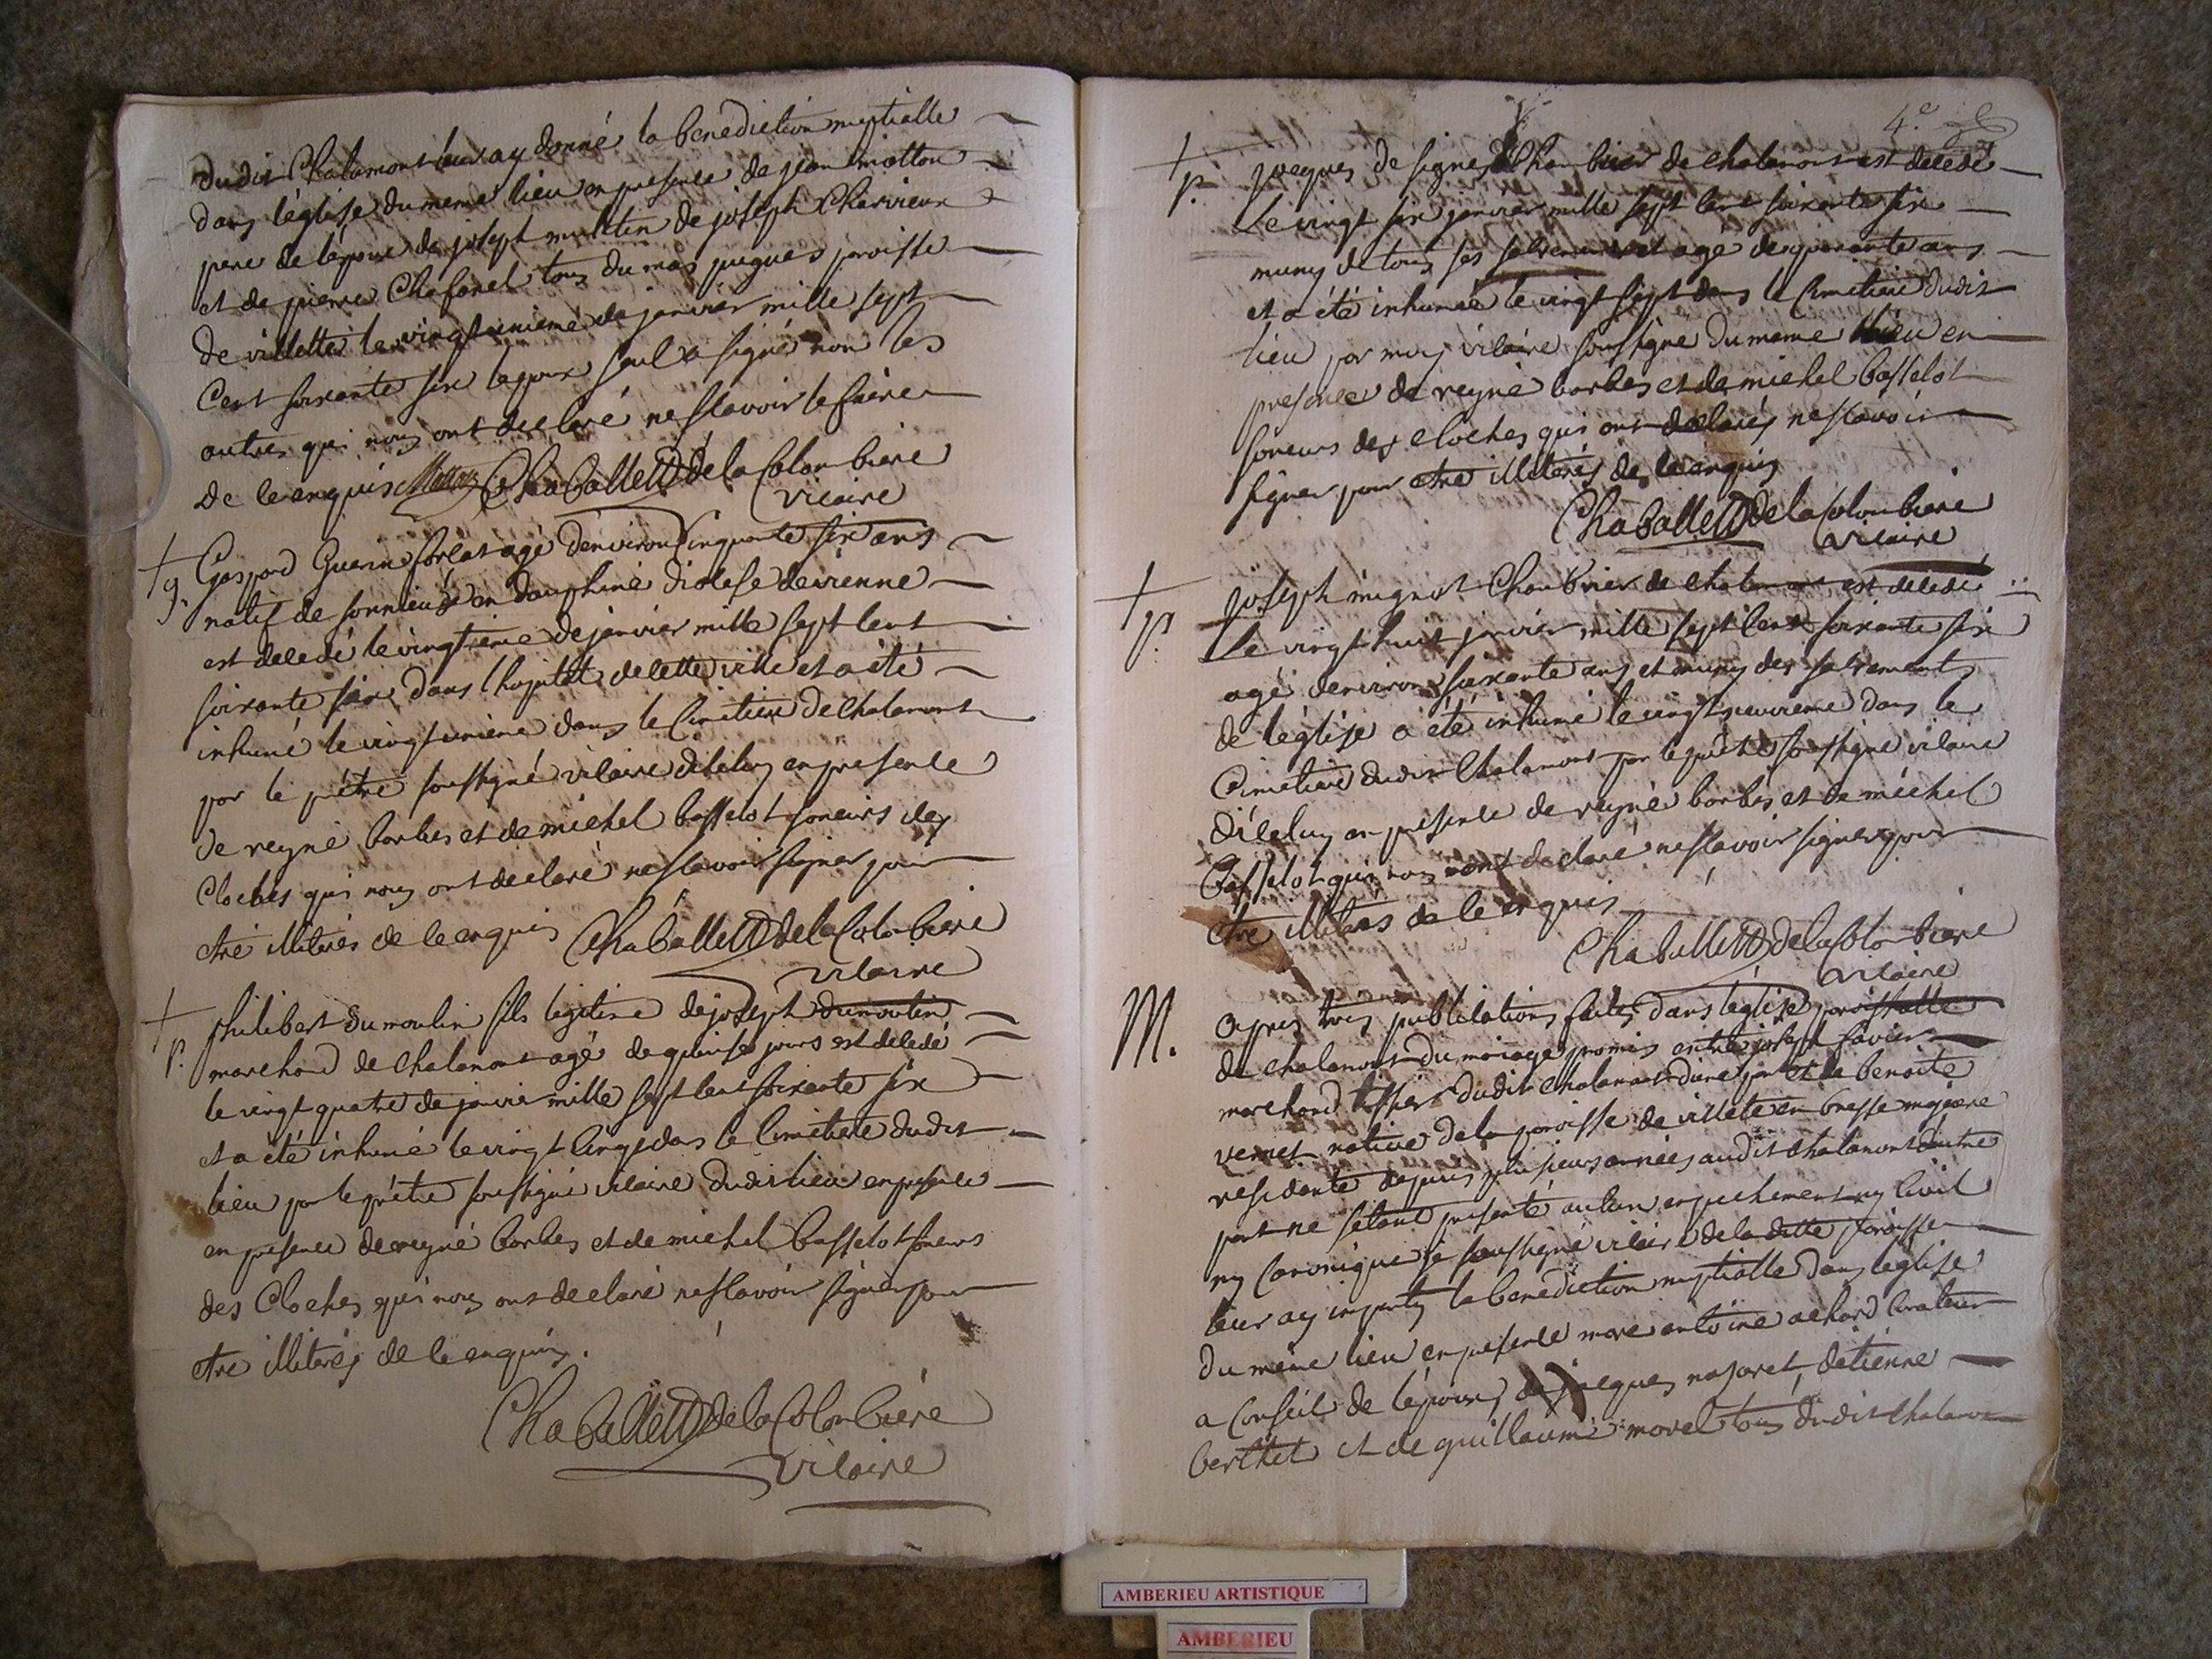 dudit Chalamont leur ay donné la benediction nuptialle
dans léglise du meme lieu en presence de jean mollon
pere de lépouse de joseph muthtin de joseph Charvieux
et de pierre Chafanel tous du mas juegues paroisse
de villette le vingt unieme de janvier mille sept
Cent soixante six lepoux seul a signé non les
autres qui nous ont declaré ne scavoir le faire
de ce enquis Chaballett de la Colombiere
vicaire
+ g. Gaspard Guerin forçat agé denviron Cinquante six ans
natif de sonnieu en dauphiné diocese de vienne
est decedé le vingtieme de janvier mille sept cent
soixante six dans lhopital de cette ville et a été
inhumé le vingt unieme dans le Cimetiere de chalamont
par le prétre soussigné vicaire diceluy en presence
de reyné barbes et de michel basselot soneurs des
Cloches qui nous ont declaré ne scavoir signer pour
etre illiterés de ce enquis Chaballett de la Colombiere
vicaire
+ p. philibert dumoulin fils légitime de joseph dumoulin
marchand de chalamont agé de quinse jours est decedé
le vingt quatre de janvier mille sept cent soixante six
et a été inhumé le vingt Cinq dans le Cimetiere dudit
lieu par le prétre soussigné vicaire dudit lieu en presence
en presence de reyné barbes et de michel basselot soneurs
des Cloches qui nous ont declaré ne scavoir signer pour
etre illiterés de ce enquis.
Chaballett de la Colombiere
vicaire
4.e
+ p. jacques de signes de chalamont est decedé
le vingt six janvier mille sept cent soixante six
muny de tous ses sacrements et agé de quarante ans
et a été inhumée le vingt sept dans le Cimetiere dudit
lieu par moy vicaire soussigné du meme lieu en
presence de reyné barbes et de michel basselot
soneurs des cloches qui ont declarés ne scavoir
signer pour etre illiterés de ce enquis
Chaballett de la Colombiere
vicaire
+ p. joseph mignot de chalamont est decedé
le vingt huit janvier mille sept cent soixante six
agé denviron soixante ans et muny des sacrements
de léglise a été inhumé le vingt neuvieme dans le
Cimetiere dudit Chalamont par le prétre soussigné vicaire
diceluy en presence de reyné barbes et de michel
basselot qui nous ont declaré ne scavoir signer pour
etre illiterés de ce enquis
Chaballett de la Colombiere
vicaire
M. apres trois publications faites dans léglise paroissialle
de chalamont du mariage promis entre joseph favier
marchand tissier dudit chalamont dune part et de benoite
vernet native de la paroisse de villete en bresse majeure
residente depuis plusieurs années audit chalamont dautre
part ne setant presenté aucun empechement ny Civil
ny Canonique je soussigné vicaire de la ditte paroisse
leur ay imparty la benediction nuptialle dans leglise
du méme lieu en presence marc antoine achard Curateur
a Conseil de lépoux, de jacques najaret, détienne
berthet et de guillaume morel tous dudit chalamon
AMBERIEU ARTISTIQUE
AMBERIEU